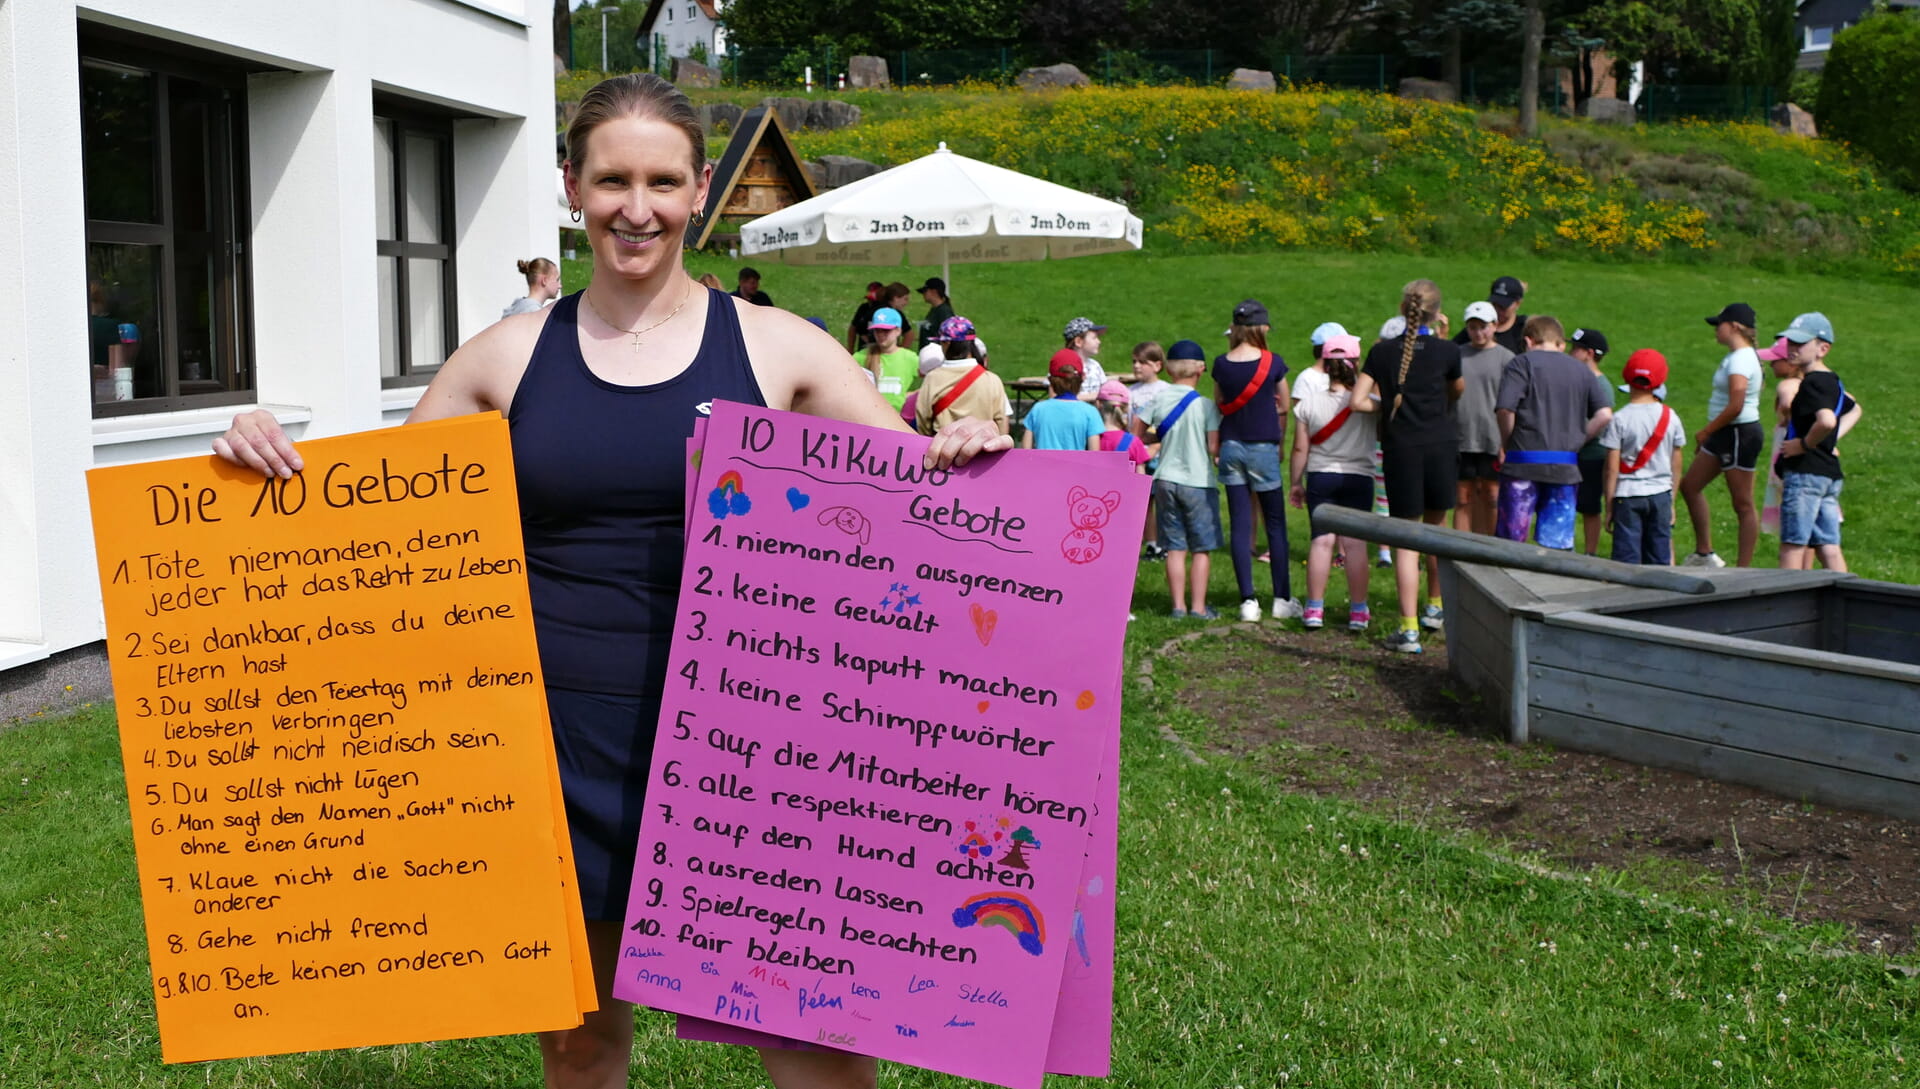 Im Dom
Im Dom
Im Dom
Die 10 Gebote
1. Töte niemanden, denn
jeder hat das Recht zu Leben
2. Sei dankbar, dass du deine
Eltern hast
3. Du sollst den Feiertag mit deinen
liebsten verbringen
4. Du sollst nicht neidisch sein.
5. Du sollst nicht lügen
6. Man sagt den Namen „Gott" nicht
ohne einen Grund
7. Klaue nicht die Sachen
anderer
8. Gehe nicht fremd
9.&10. Bete keinen anderen Gott
an.
10 KiKuWo
Gebote
1. niemanden ausgrenzen
2. keine Gewalt
3. nichts kaputt machen
4. keine Schimpfwörter
5. auf die Mitarbeiter hören
6. alle respektieren
7. auf den Hund achten
8. ausreden lassen
9. Spielregeln beachten
10. fair bleiben
Rebekka
Anna
Mia
Mia
Phil
Lena
Lea.
Stella
Tim